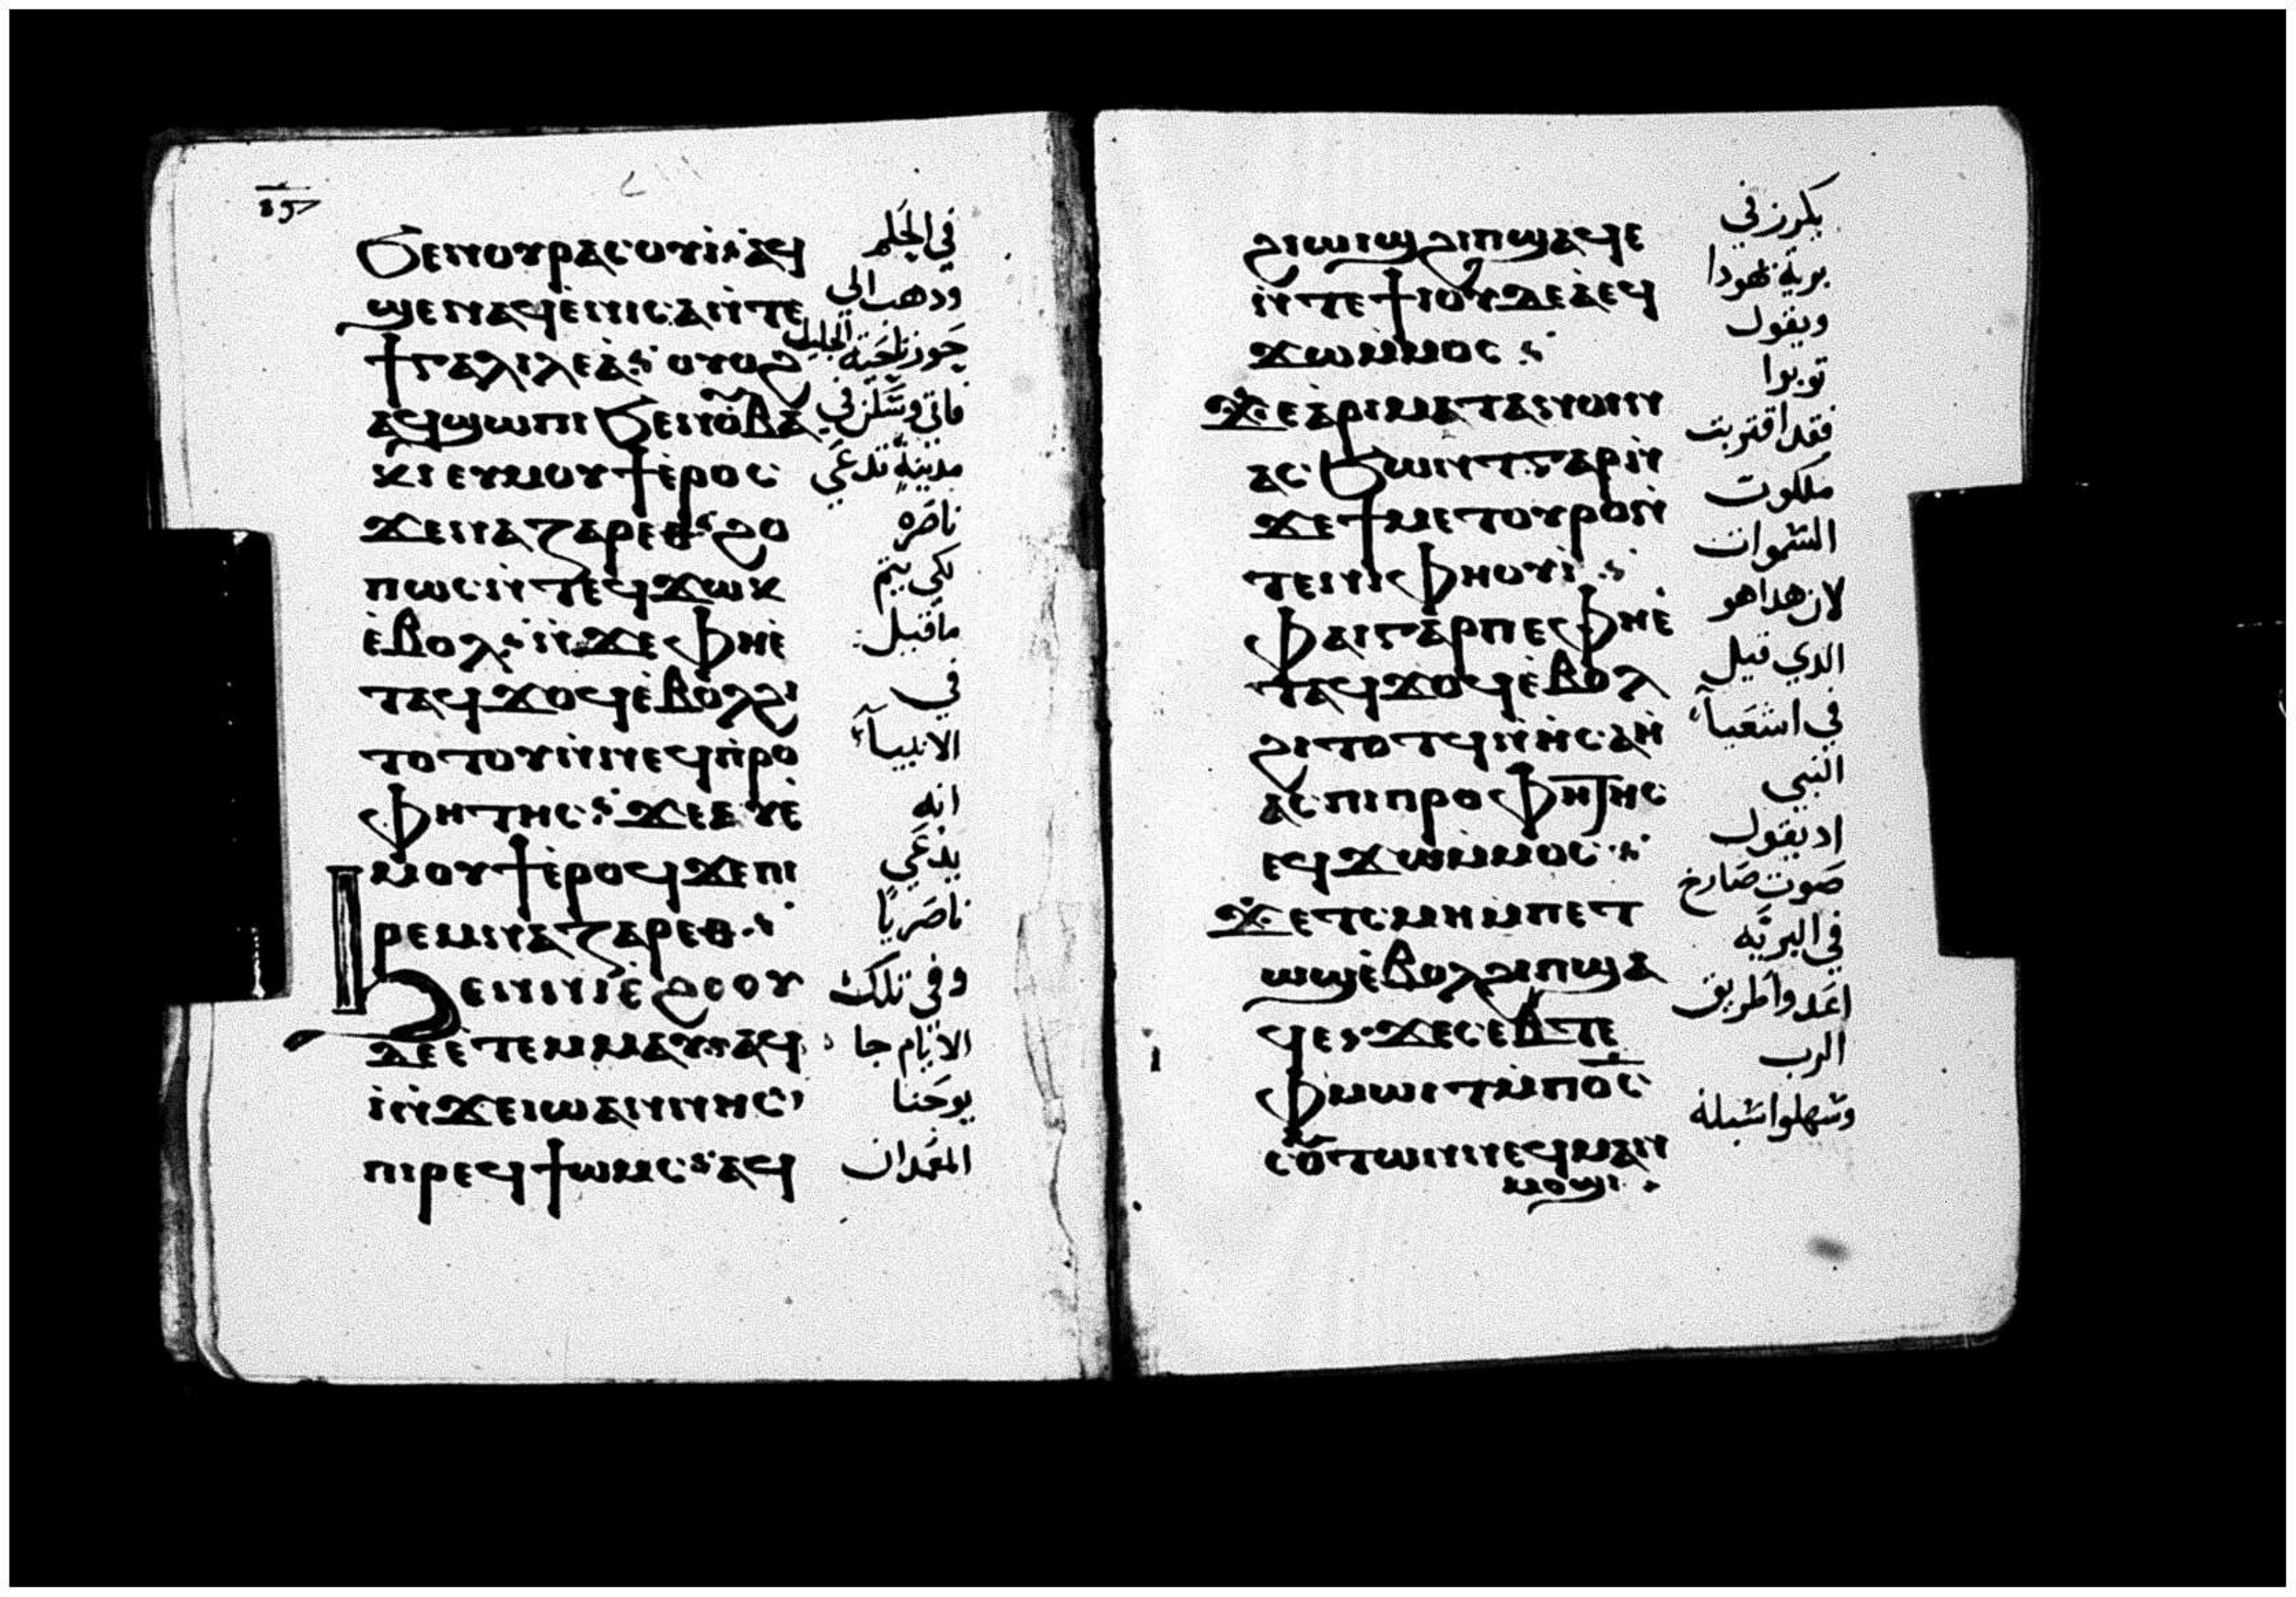 ϧⲉⲛⲟⲩⲣⲁⲥⲟⲩⲓ⳾ⲁϥ
ϣⲉⲛⲁϥⲉ̀ⲛⲓⲥⲁⲛ̀ⲧⲉ
ϯⲅⲁⲗⲓⲗⲉⲁ̀⳾ ⲟⲩⲟϩ
ⲁϥϣⲱⲡⲓ ϧⲉⲛⲟⲩⲃⲁ
ⲕⲓ ⲉⲩⲙⲟⲩϯⲉ̀ⲣⲟⲥ
ϫⲉⲛⲁⲍⲁⲣⲉⲑ⳾ ϩⲟ
ⲡⲱⲥⲛ̀ⲧⲉϥϫⲱⲕ
ⲉ̀ⲃⲟⲗ⳾ ⲛ̀ϫⲉⲫⲏⲉ̀
ⲧⲁϥϫⲟϥⲉ̀ⲃⲟⲗϩⲓ
ⲧⲟⲧⲟⲩⲛ̀ⲛⲉϥⲡ̀ⲣⲟ
ⲫⲏⲧⲏⲥ⳾ ϫⲉⲉⲩⲉ̀
ⲙⲟⲩϯⲉ̀ⲣⲟϥϫⲉⲡⲓ
ⲣⲉⲙⲛⲁⲍⲁⲣⲉⲑ⳾
ϧⲉⲛⲛⲓⲉ̀ϩⲟⲟⲩ
ⲇⲉⲉⲧⲉⲙⲙⲁⲩ⳾ⲁϥⲓ̀
ⲛ̀ϫⲉⲓⲱⲁⲛⲛⲏⲥ
ⲡⲓⲣⲉϥϯⲱⲙⲥ⳾ ⲁϥ
في الحلم
ودهب الي
حوز ناحية الجليل
فاتي وسكن في
مدينة تدعي
ناصره
لكي يتم
ماقيل
في
الانبيآء
انه
يدعي
ناصريًا
وفي تلك
الايام جا
يوحنا
المعمدان
ϩⲓⲱⲓϣϩⲓⲡϣⲁϥⲉ
ⲛ̀ⲧⲉϯⲓⲟⲩⲇⲉⲁ̀ⲉϥ
ϫⲱⲙⲙⲟⲥ⳾
ϫⲉⲁ̀ⲣⲓⲙⲉⲧⲁⲛⲟⲓⲛ
ⲁⲥϧⲱⲛⲧⲅⲁⲣⲛ̀
ϫⲉϯⲙⲉⲧⲟⲩⲣⲟⲛ̀
ⲧⲉⲛⲓⲫⲏⲟⲩⲓ̀⳾
ⲫⲁⲓⲅⲁⲣⲡⲉⲫⲏⲉ̀
ⲧⲁϥϫⲟϥⲉ̀ⲃⲟⲗ
ϩⲓⲧⲟⲧϥⲛ̀ⲏ̀ⲥⲁⲏ̀
ⲁⲥⲡⲓⲡⲣⲟⲫⲏⲧⲏⲥ
ⲉϥϫⲱⲙ̀ⲙⲟⲥ⳾
ϫⲉⲧⲥⲙⲏⲙ̀ⲡⲉⲧ
ⲱϣⲉ̀ⲃⲟⲗϩⲓⲡϣⲁ
ϥⲉ⳾ϫⲉⲥⲉⲃⲧⲉ
ⲫⲙⲱⲓⲧⲙ̀ⲡⲟ̅ⲥ̅
ⲥⲟⲩⲧⲱⲛⲛⲉϥⲙⲁⲛ
ⲙⲟϣⲓ
يكرز في
برية يهودا
ويقول
توبوا
فقد اقتربت
ملكوت
السموات
لان هدا هو
الدي قيل
في اشعيآء
النبي
اد يقول
صوت صارخ
في البريه
اعدوا طريق
الرب
وسهلوا سبله